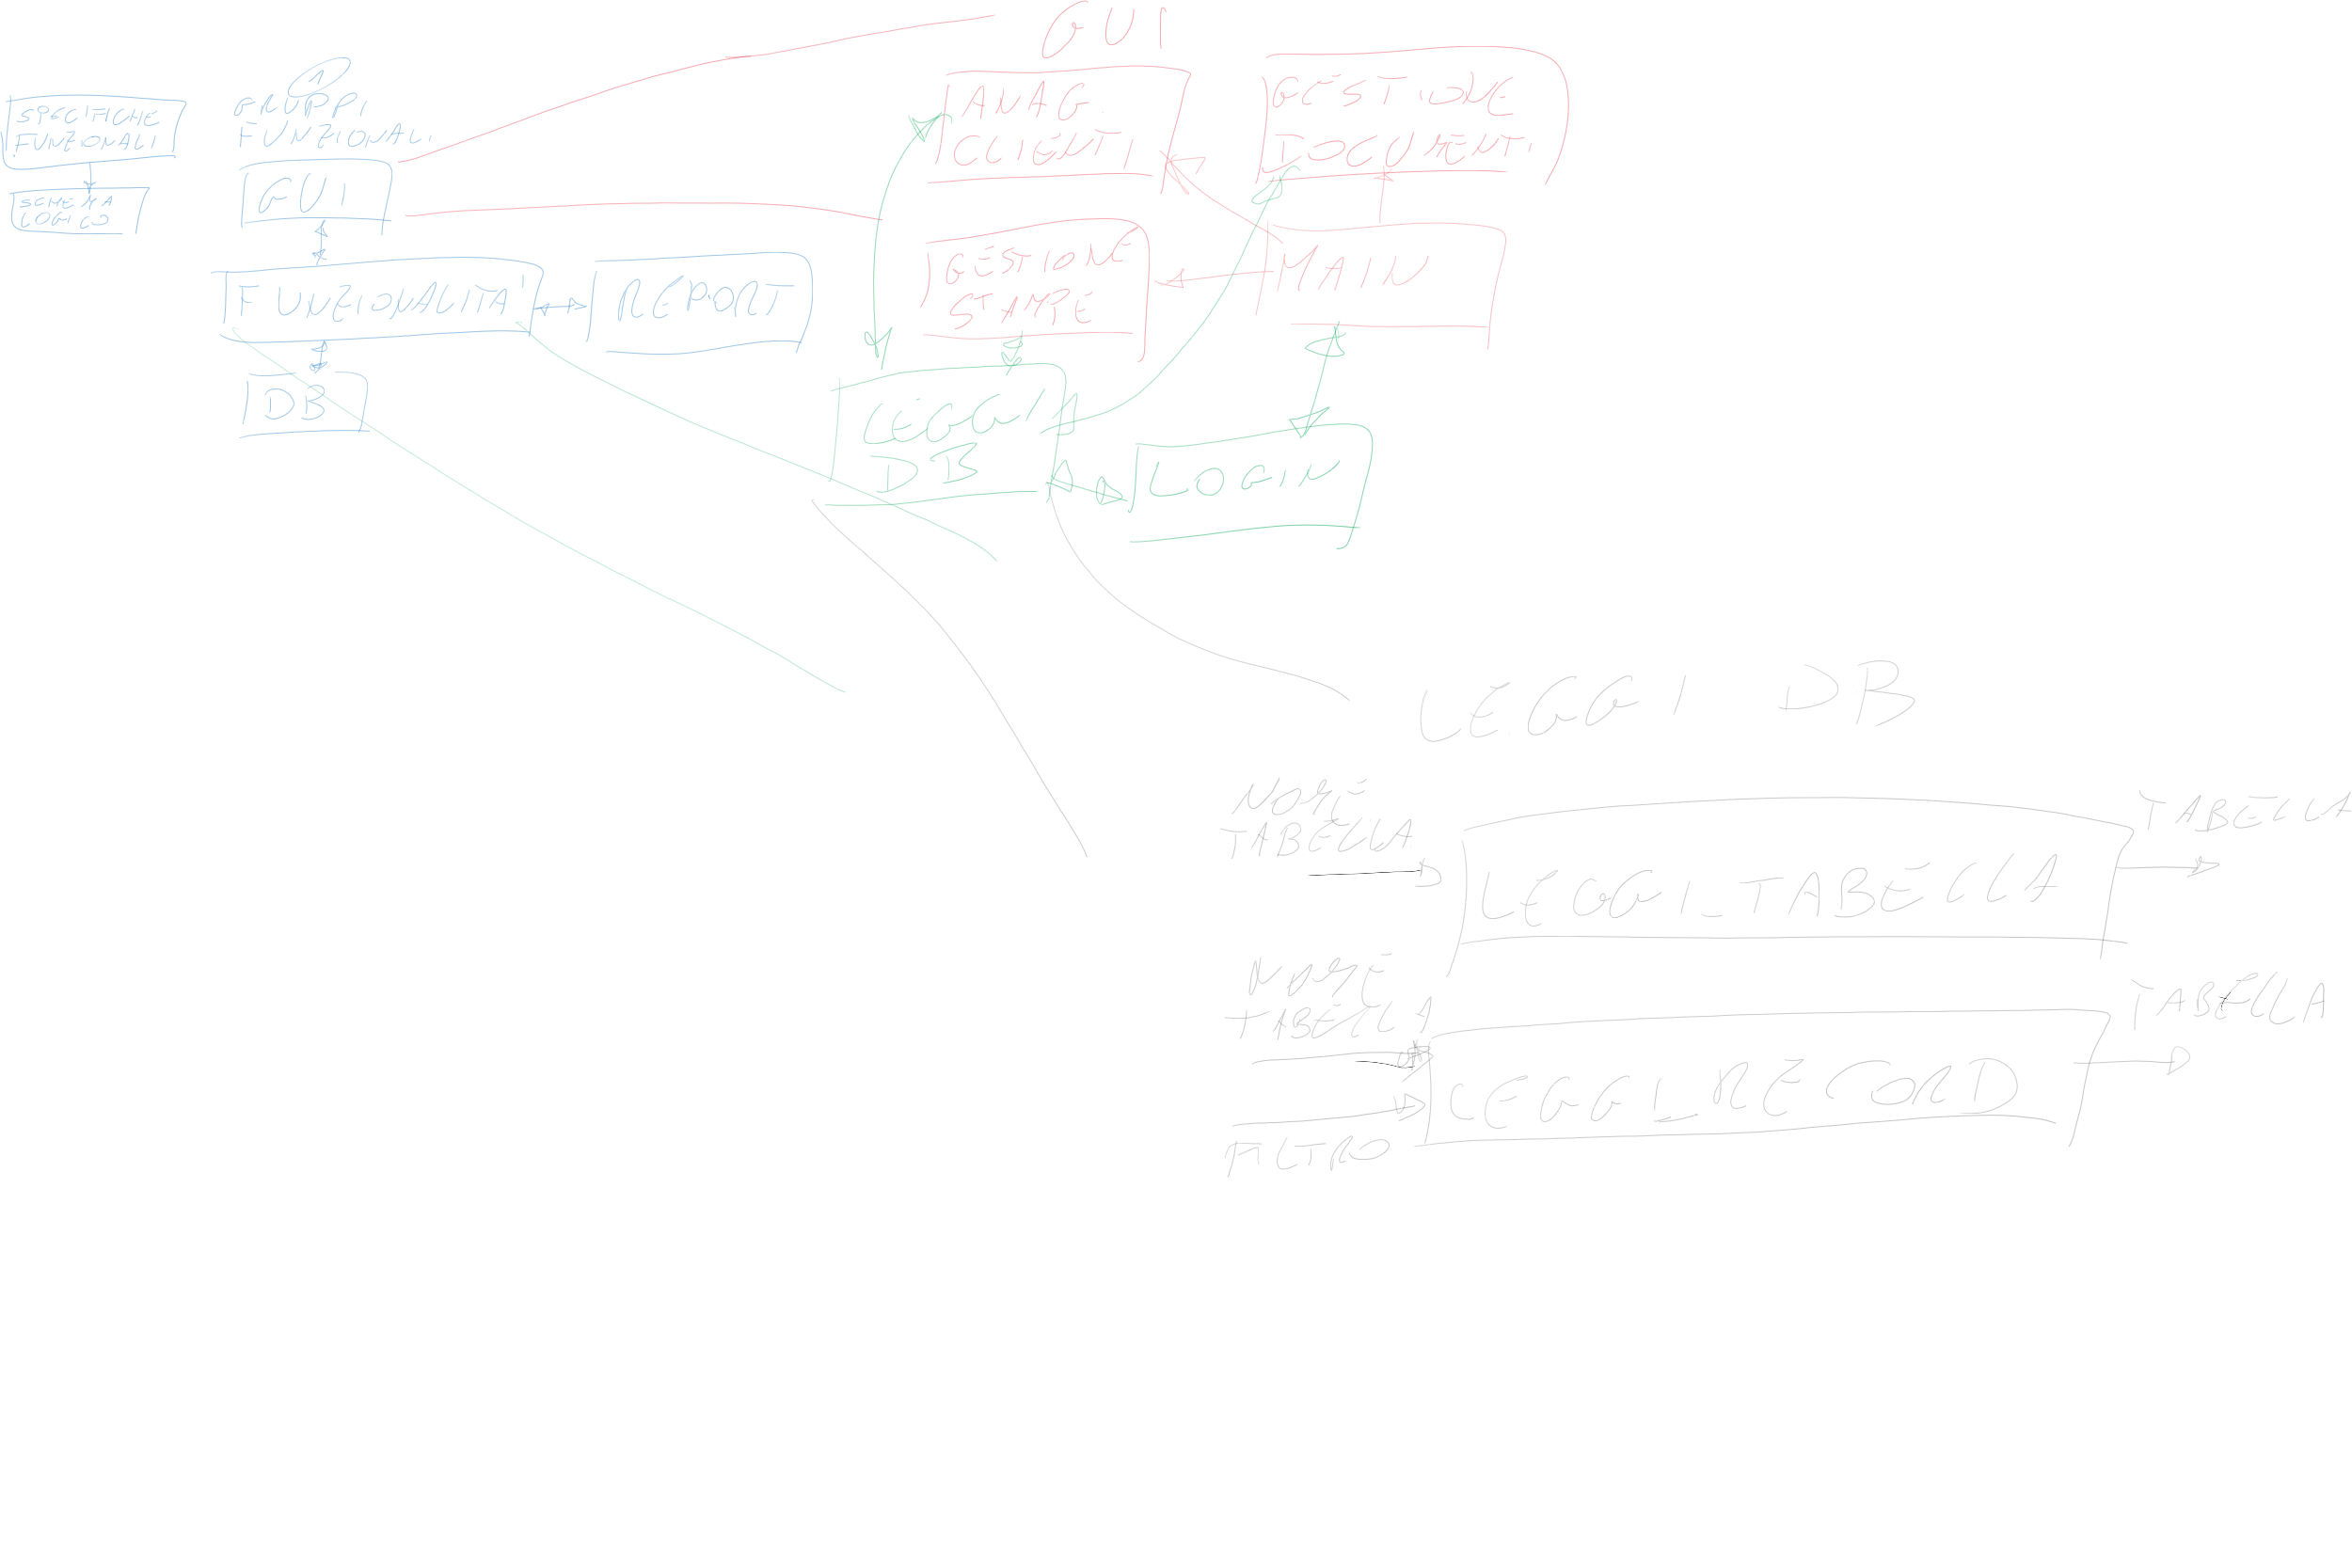 SPECIFICHE
FUNZIONALI
SCHEMA
LOGICO
GRUPPI
FUNZIONALI
GUI
FUNZIONALITA'
DB
REPORT
GUI
ANAG.
CLIENTI
GESTIONE
DOCUMENTI
GESTIONE
MAIN
LEGGI
DB
LOGIN
LEGGI DB
NOME
TABELLA
LEGGI_TABELLA
TABELLA
NOME
TABELLA
LEGGI_RECORD
TABELLA
ALTRO